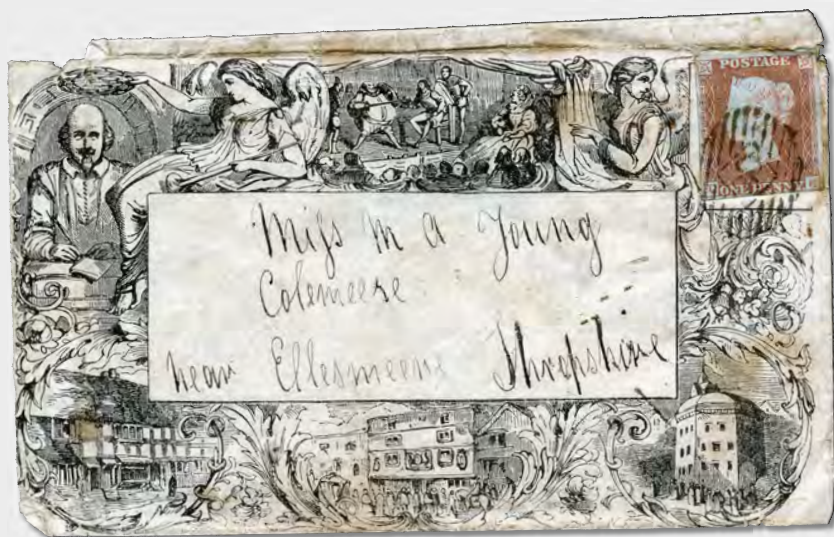 POSTAGE
ONE PENNY
Miss M A Young
Colemeere
near Ellesmeere Shropshire